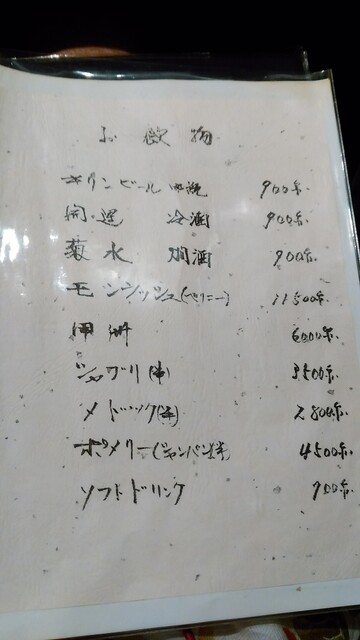 お飲物
キリンビール 中瓶 900円.
開運 冷酒 900円.
菊水 燗酒 900円.
モンラッシェ(ピュリニー) 11500円.
6000円.
シャブリ(半) 3500円.
メドック(半) 2800円.
ポメリー(シャンパン半) 4500円.
ソフトドリンク 900円.